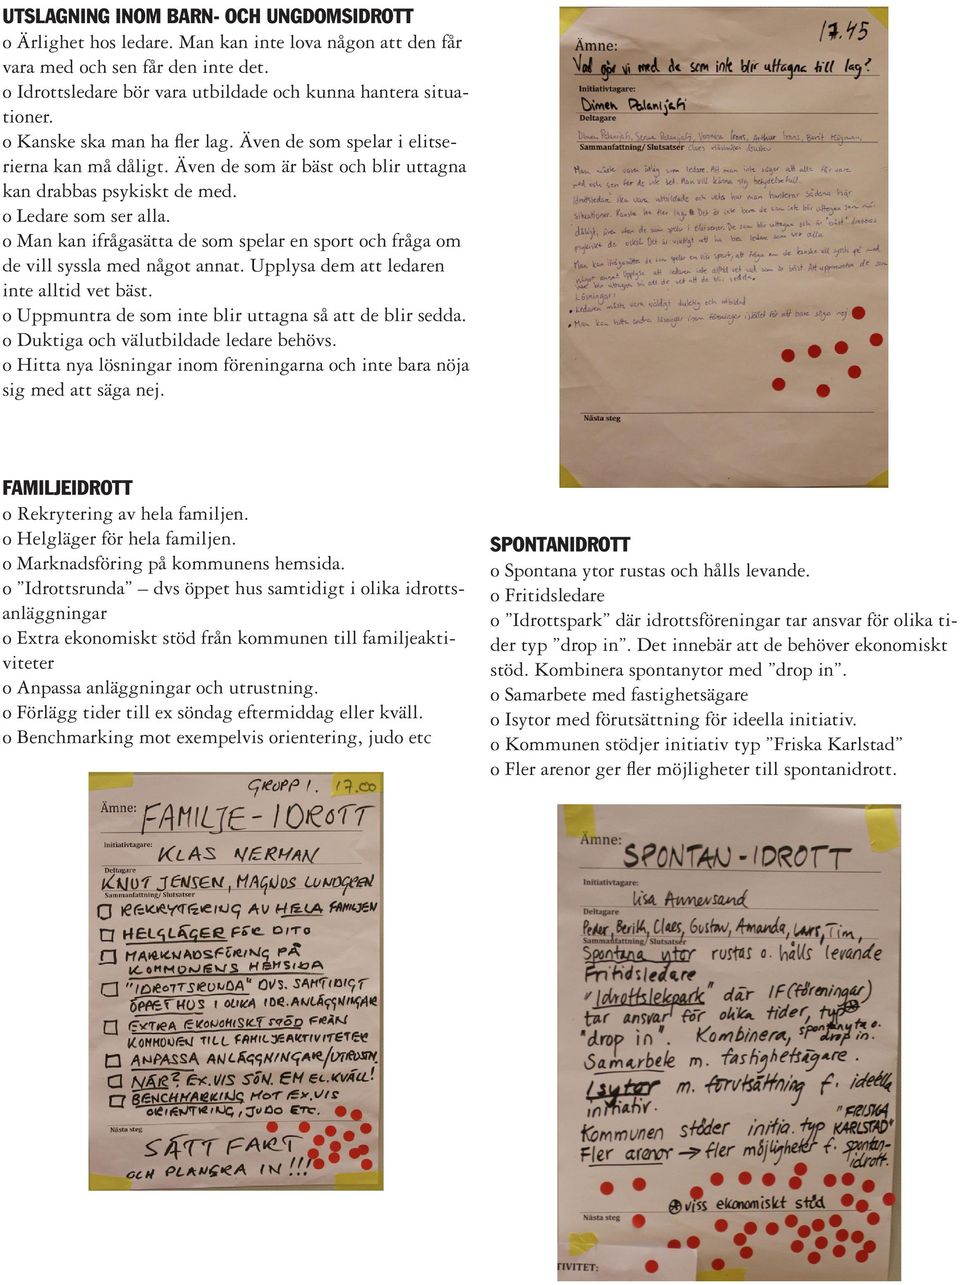 UTSLAGNING INOM BARN- OCH UNGDOMSIDROTT
o Ärlighet hos ledare. Man kan inte lova någon att den får
vara med och sen får den inte det.
o Idrottsledare bör vara utbildade och kunna hantera situa-
tioner.
o Kanske ska man ha fler lag. Även de som spelar i elitse-
rierna kan må dåligt. Även de som är bäst och blir uttagna
kan drabbas psykiskt de med.
o Ledare som ser alla.
o Man kan ifrågasätta de som spelar en sport och fråga om
de vill syssla med något annat. Upplysa dem att ledaren
inte alltid vet bäst.
o Uppmuntra de som inte blir uttagna så att de blir sedda.
o Duktiga och välutbildade ledare behövs.
o Hitta nya lösningar inom föreningarna och inte bara nöja
sig med att säga nej.
17.45
Ämne:
Vad gör vi med de som inte blir uttagna till lag?
Initiativtagare:
Dimen
Deltagare
Sammanfattning/ Slutsatser
Man måste vara ärlig som ledare. Att man inte säger att alla får vara
med och sen får de inte det. Man vill känna sig betydelsefull.
situationer. Kanske ha fler lag. Det är inte bara de som inte blir uttagna som mår
Lösningar:
• Ledaren måste vara väldigt duktig och utbildad
• Man kan hitta andra lösningar inom föreningar istället för att bara säga nej.
Nästa steg
FAMILJEIDROTT
o Rekrytering av hela familjen.
o Helgläger för hela familjen.
o Marknadsföring på kommunens hemsida.
o ”Idrottsrunda” – dvs öppet hus samtidigt i olika idrotts-
anläggningar
o Extra ekonomiskt stöd från kommunen till familjeakti-
viteter
o Anpassa anläggningar och utrustning.
o Förlägg tider till ex söndag eftermiddag eller kväll.
o Benchmarking mot exempelvis orientering, judo etc
GRUPP 1. 17.00
Ämne:
FAMILJE-IDROTT
Initiativtagare:
KLAS NERMAN
Deltagare
KNUT JENSEN, MAGNUS LUNDGREN
Sammanfattning/ Slutsatser
REKRYTERING AV HELA FAMILJEN
HELGLÄGER FÖR DITO
MARKNADSFÖRING PÅ
KOMMUNENS HEMSIDA
"IDROTTSRUNDA" DVS. SAMTIDIGT
ÖPPET HUS I OLIKA IDR.ANLÄGGNINGAR
EXTRA EKONOMISKT STÖD FRÅN
KOMMUNEN TILL FAMILJEAKTIVITETER
ANPASSA ANLÄGGNINGAR/UTRUSTN.
NÄR? EX.VIS SÖN. EM EL. KVÄLL!
BENCHMARKING MOT EX.VIS
ORIENTRING, JUDO ETC.
Nästa steg
SÄTT FART
OCH PLANERA IN!!!
SPONTANIDROTT
o Spontana ytor rustas och hålls levande.
o Fritidsledare
o ”Idrottspark” där idrottsföreningar tar ansvar för olika ti-
der typ ”drop in”. Det innebär att de behöver ekonomiskt
stöd. Kombinera spontanytor med ”drop in”.
o Samarbete med fastighetsägare
o Isytor med förutsättning för ideella initiativ.
o Kommunen stödjer initiativ typ ”Friska Karlstad”
o Fler arenor ger fler möjligheter till spontanidrott.
Ämne:
SPONTAN-IDROTT
Initiativtagare:
Lisa Annersand
Deltagare
Peder, Berith, Claes, Gustav, Amanda, Lars, Tim,
Sammanfattning/ Slutsatser
Spontana ytor rustas o. hålls levande
Fritidsledare
"Idrottslekpark" där IF (föreningar)
tar ansvar för olika tider, typ
"drop in". Kombinera, spontanyta o.
drop in.
Samarbete m. fastighetsägare.
Isytor m. förutsättning f. ideella
initiativ.
Kommunen stöder initia. typ "FRISKA
KARLSTAD"
Fler arenor → fler möjligheter f. spontan-
idrott.
viss ekonomiskt stöd
Nästa steg
TIVITET: